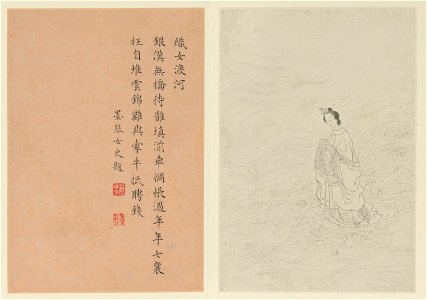 織女渡河
銀漢無橋待鵲填湔車惆悵過年年七襄
枉自堆雲錦難與牽牛抵聘錢
墨琴女史題